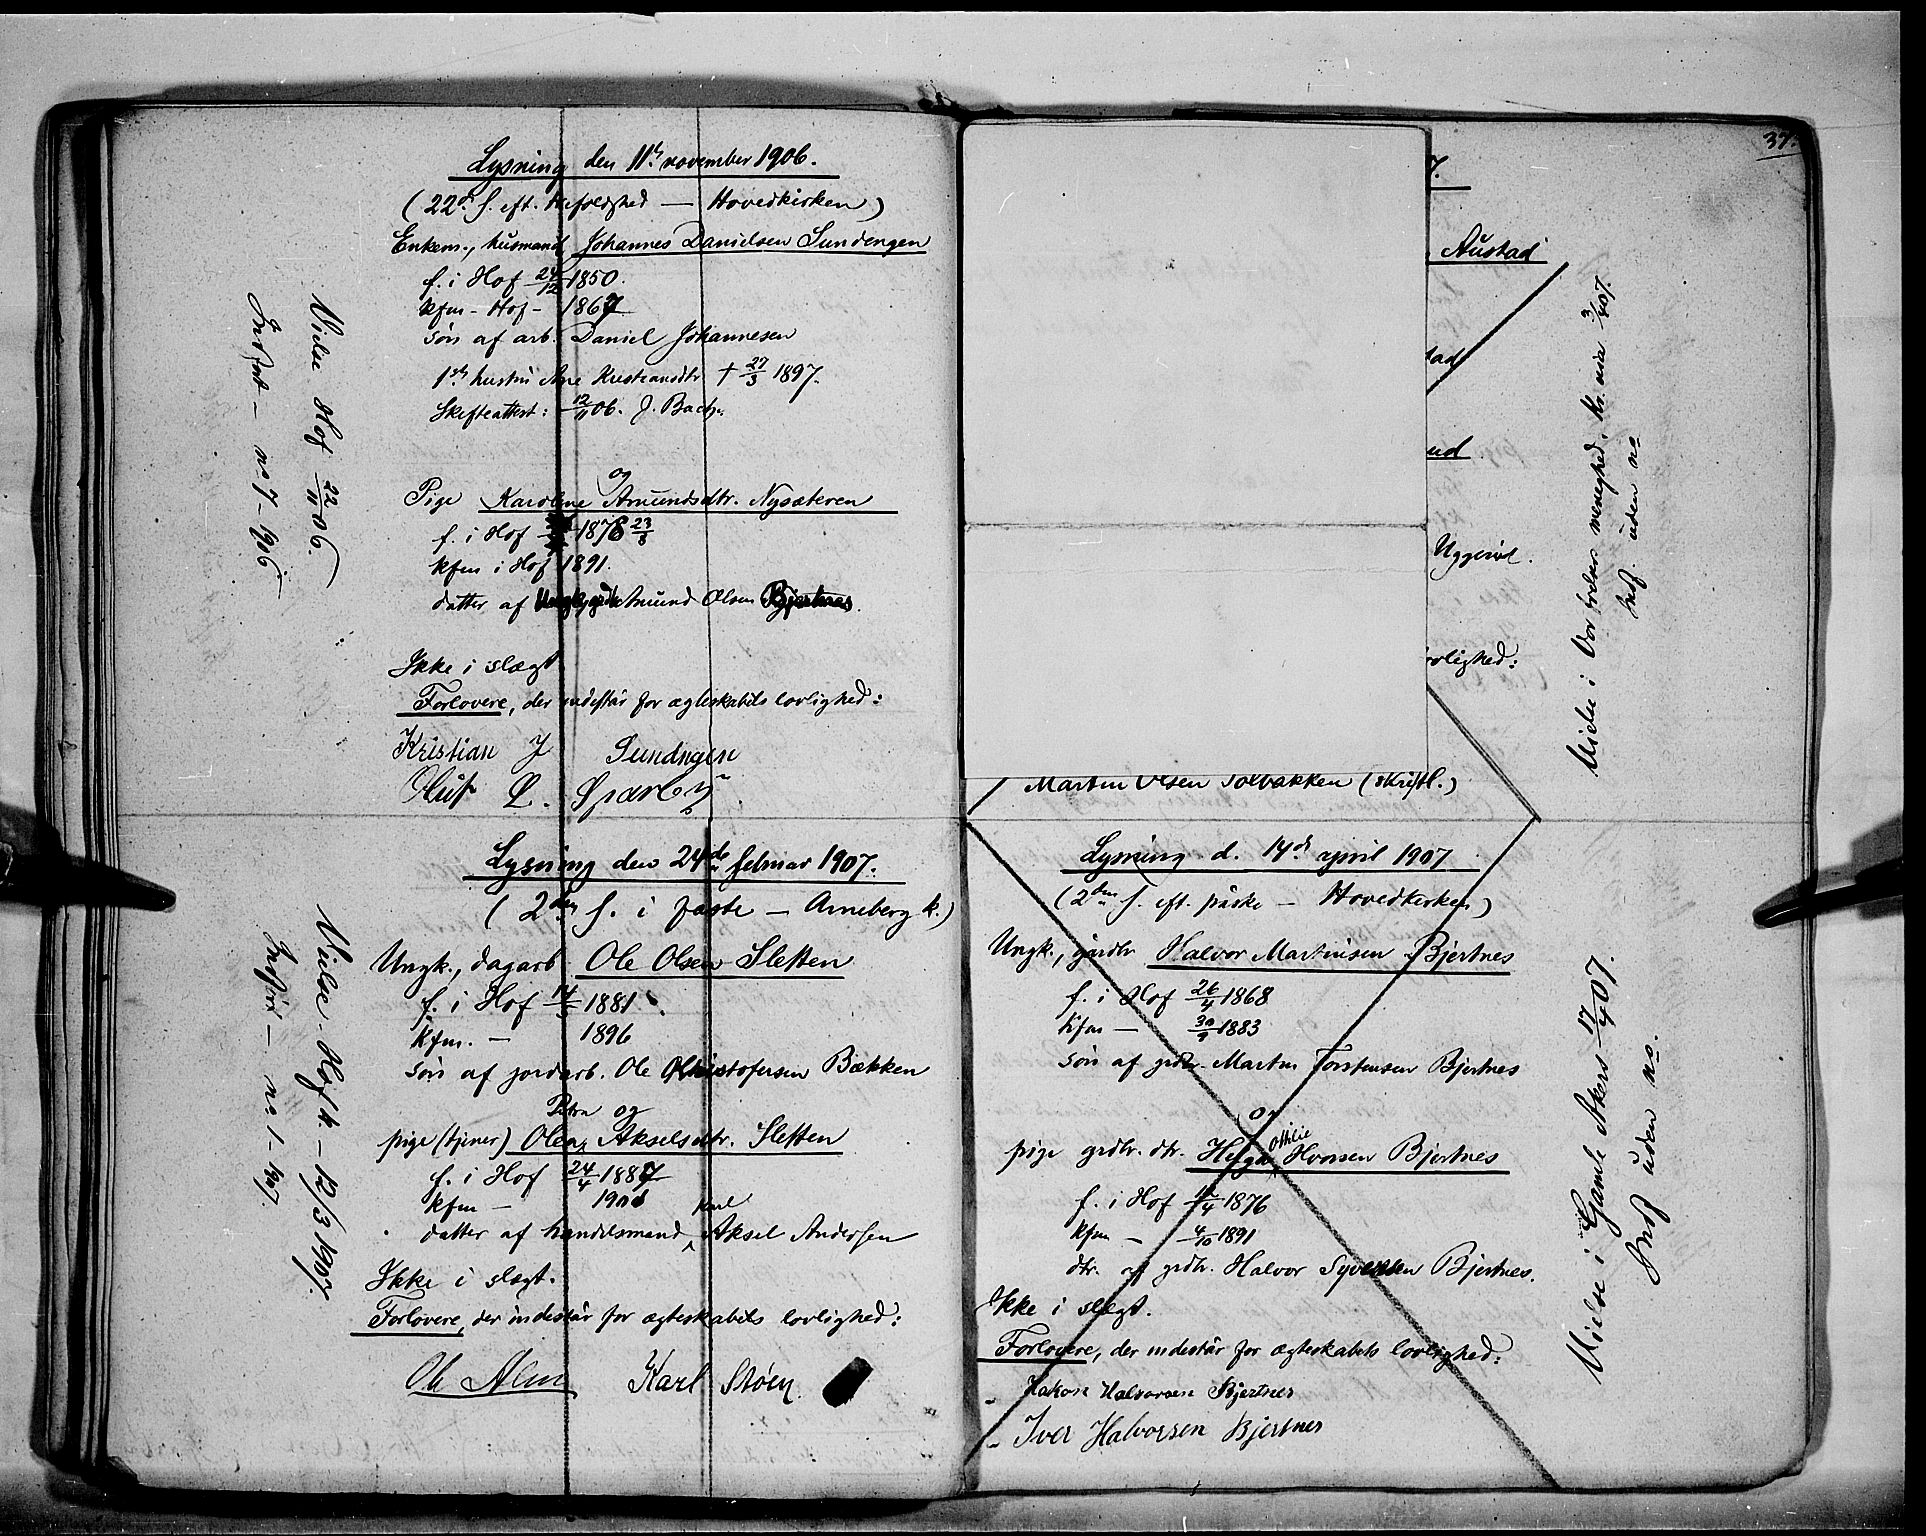 Lysning den 11te november 1906.
(22de s. eft. trefoldghed — Hovedkirken)
Enkem., husmand Johannes Danielsen Sundengen
f. i Hof 24/12 1850.
kfm - Hof - 1867
søn af arb. Daniel Johannesen
1ste hustru Ane Kristiansdtr † 27/3 1897.
Skifteattest: 12/11 06. J. Bache
og
Pige Karoline Amundsdtr. Nysæteren
f. i Hof 1876 23/8
kfm i Hof 1891.
datter af Amund Olsen Bjertnes.
Ikke i slægt
Forlovere, der indestår for ægteskabets lovlighed:
Kristian J Sundngen
Oluf L. Sparby
Vielse Hof 22/11 06.
Indført - no 7 - 1906
Lysning den 24de februar 1907.
(2den s. i faste — Arneberg k.)
Ungk., dagarb Ole Olsen Sletten
f. i Hof 14/ 1881
kfm. - 1896
søn af jordarb. Ole Kristofersen Bækken
Petra og
pige (tjener) Olea Akselsdtr. Sletten
f. i Hof 24/4 1887
kfm - 190
Karl
datter af handelsmand Aksel Andersen
Ikke i slægt.
Forlovere, der indestår for ægteskabets lovlighed:
Ole Alm Karl Støen
Vielse - Hof k. - 12/3 1907.
Indført - no 1 - 1907.
37.
7.
Austad
tad
ud
Uggerud.
ovlighed:
Martin Olsen Tolbakken (skriftl.)
Vielse i Vor Frelsers menighed, Kr.ania 3/4 07.
Indf. uden no
Lysning d. 14de april 1907
(2den s. eft. påske — Hovedkirken)
Ungk., gårdbr Halvor Martinsen Bjertnes
f. i Hof 26/4 1868
kfm - 30/9 1883
søn af grdbr. Martin Torstensen Bjertnes
og
Ottilie
pige grdbr. dtr. Helga Hvorsen Bjertnes
f. i Hof /4 1876
kfm - 4/10 1891
dtr. af grdbr. Halvor Syversen Bjertnes.
Ikke i slægt.
Forlovere, der indestår for ægteskabets lovlighed:
Hakon Halvorsen Bjertnes
Iver Halvorsen Bjertnes
Vielse i Gamle Akers 17/4 07.
Indf uden no.